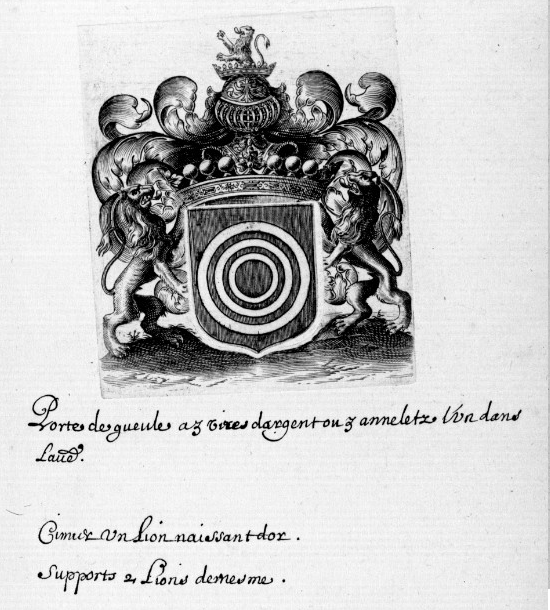 Porte de gueule a 3 vires dargent ou 3 anneletz l'vn dans
lautre.
Cimier vn Lion naissant dor.
Supports 2 Lions demesme.